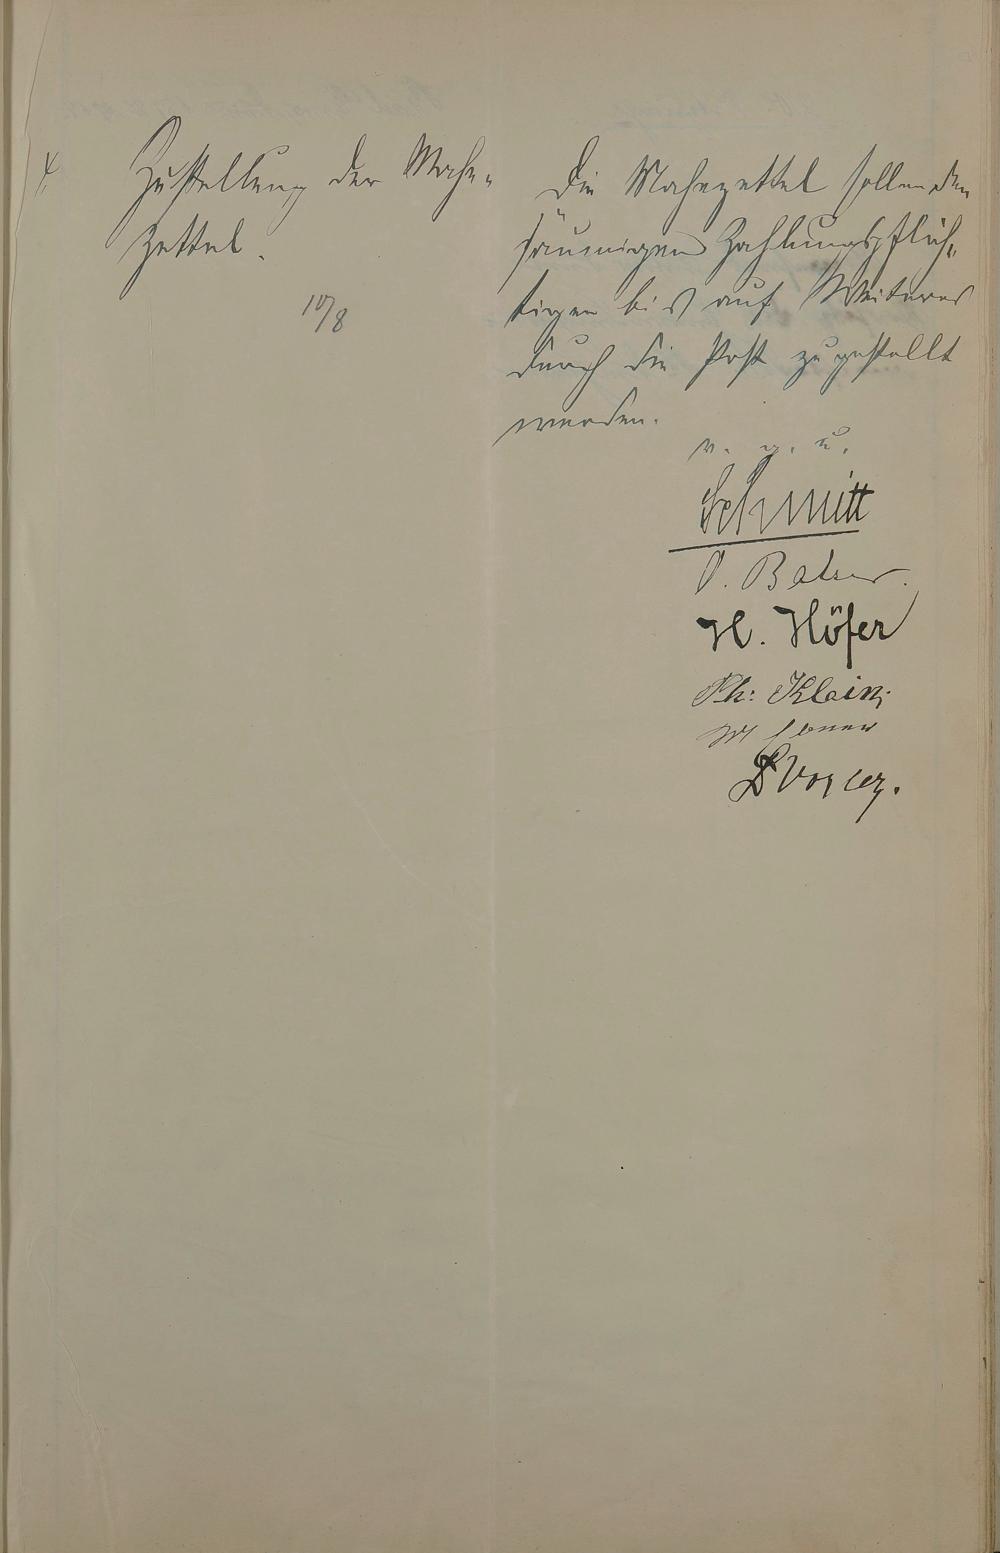 4. Zustellung der Mahn-
zettel.
10/8
Die Mahnzettel sollen den
säumigen Zahlungspflich-
tigen bis auf Weiteres
durch die Post zugestellt
werden.
v. g. u.
Schmitt
O. Balser.
H. Höfer
Ph: Klein